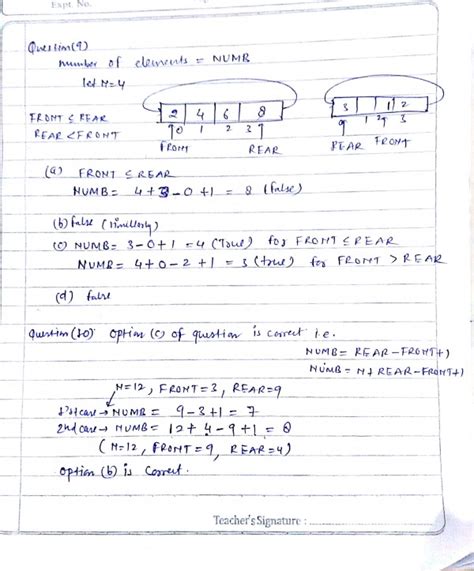 Expt. No.
Question(9)
number of elements = NUMB
let N=4
FRONT ≤ REAR
REAR < FRONT
2 4 6 8
0 1 2 3
FRONT REAR
3 1 2
1 2 3
REAR FRONT
(a) FRONT ≤ REAR
NUMB = 4+3-0+1 = 8 (false)
(b) false (similarly)
(c) NUMB = 3-0+1 = 4 (True) for FRONT ≤ REAR
NUMB = 4+0-2+1 = 3 (true) for FRONT > REAR
(d) false
Question(10) option (c) of question is correct i.e.
NUMB = REAR-FRONT+1
NUMB = N+REAR-FRONT+1
N=12, FRONT=3, REAR=9
1st case → NUMB = 9-3+1 = 7
2nd case → NUMB = 12+4-9+1 = 8
(N=12, FRONT=9, REAR=4)
option (b) is correct.
Teacher's Signature :